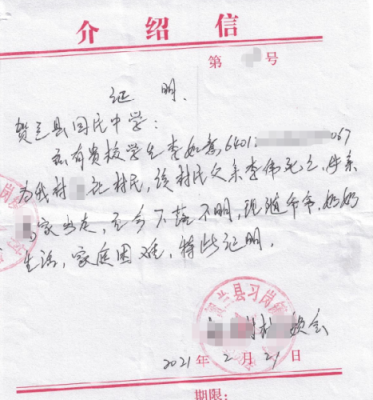 介绍信
第 号
证明
贺兰县回民中学：
兹有贵校学生李如意，6401 067
为我村 社村民，该村民父亲李伟死亡，母亲
家出走，至今下落不明，现随爷爷、奶奶
生活，家庭困难，特此证明。
兰县习岗
村 委会
2021年2月21日
期限：